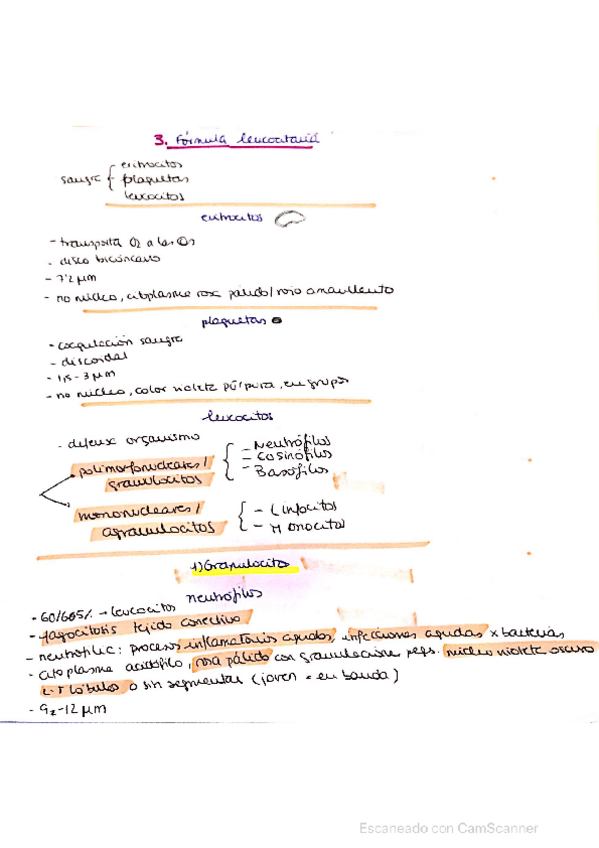 3. Fórmula leucocitaria
sangre { eritrocitos
plaquetas
leucocitos
eritrocitos
- transporta O2 a las
- disco bicóncavo
- 7'2 µm
- no núcleo, citoplasma rosa palido/rojo amarillento
plaquetas
- coagulación sangre
- discoidal
- 1,5-3 µm
- no núcleo, color violeta púrpura, en grupos
leucocitos
- defensa organismo
polimorfonucleares/
granulocitos
- Neutrófilos
- Eosinófilos
- Basófilos
mononucleares/
agranulocitos
- Linfocitos
- Monocitos
1) Granulocitos
neutrófilos
- 60/65% → leucocitos
- fagocitosis tejido conectivo
- neutrofilic: procesos inflamatorios agudos, infecciones agudas x bacterias
- citoplasma acidófilo, rosa pálido con granulaciones peqs. núcleo violeta oscuro
lóbulos o sin segmentar (joven = en banda)
- 9-12 µm
Escaneado con CamScanner